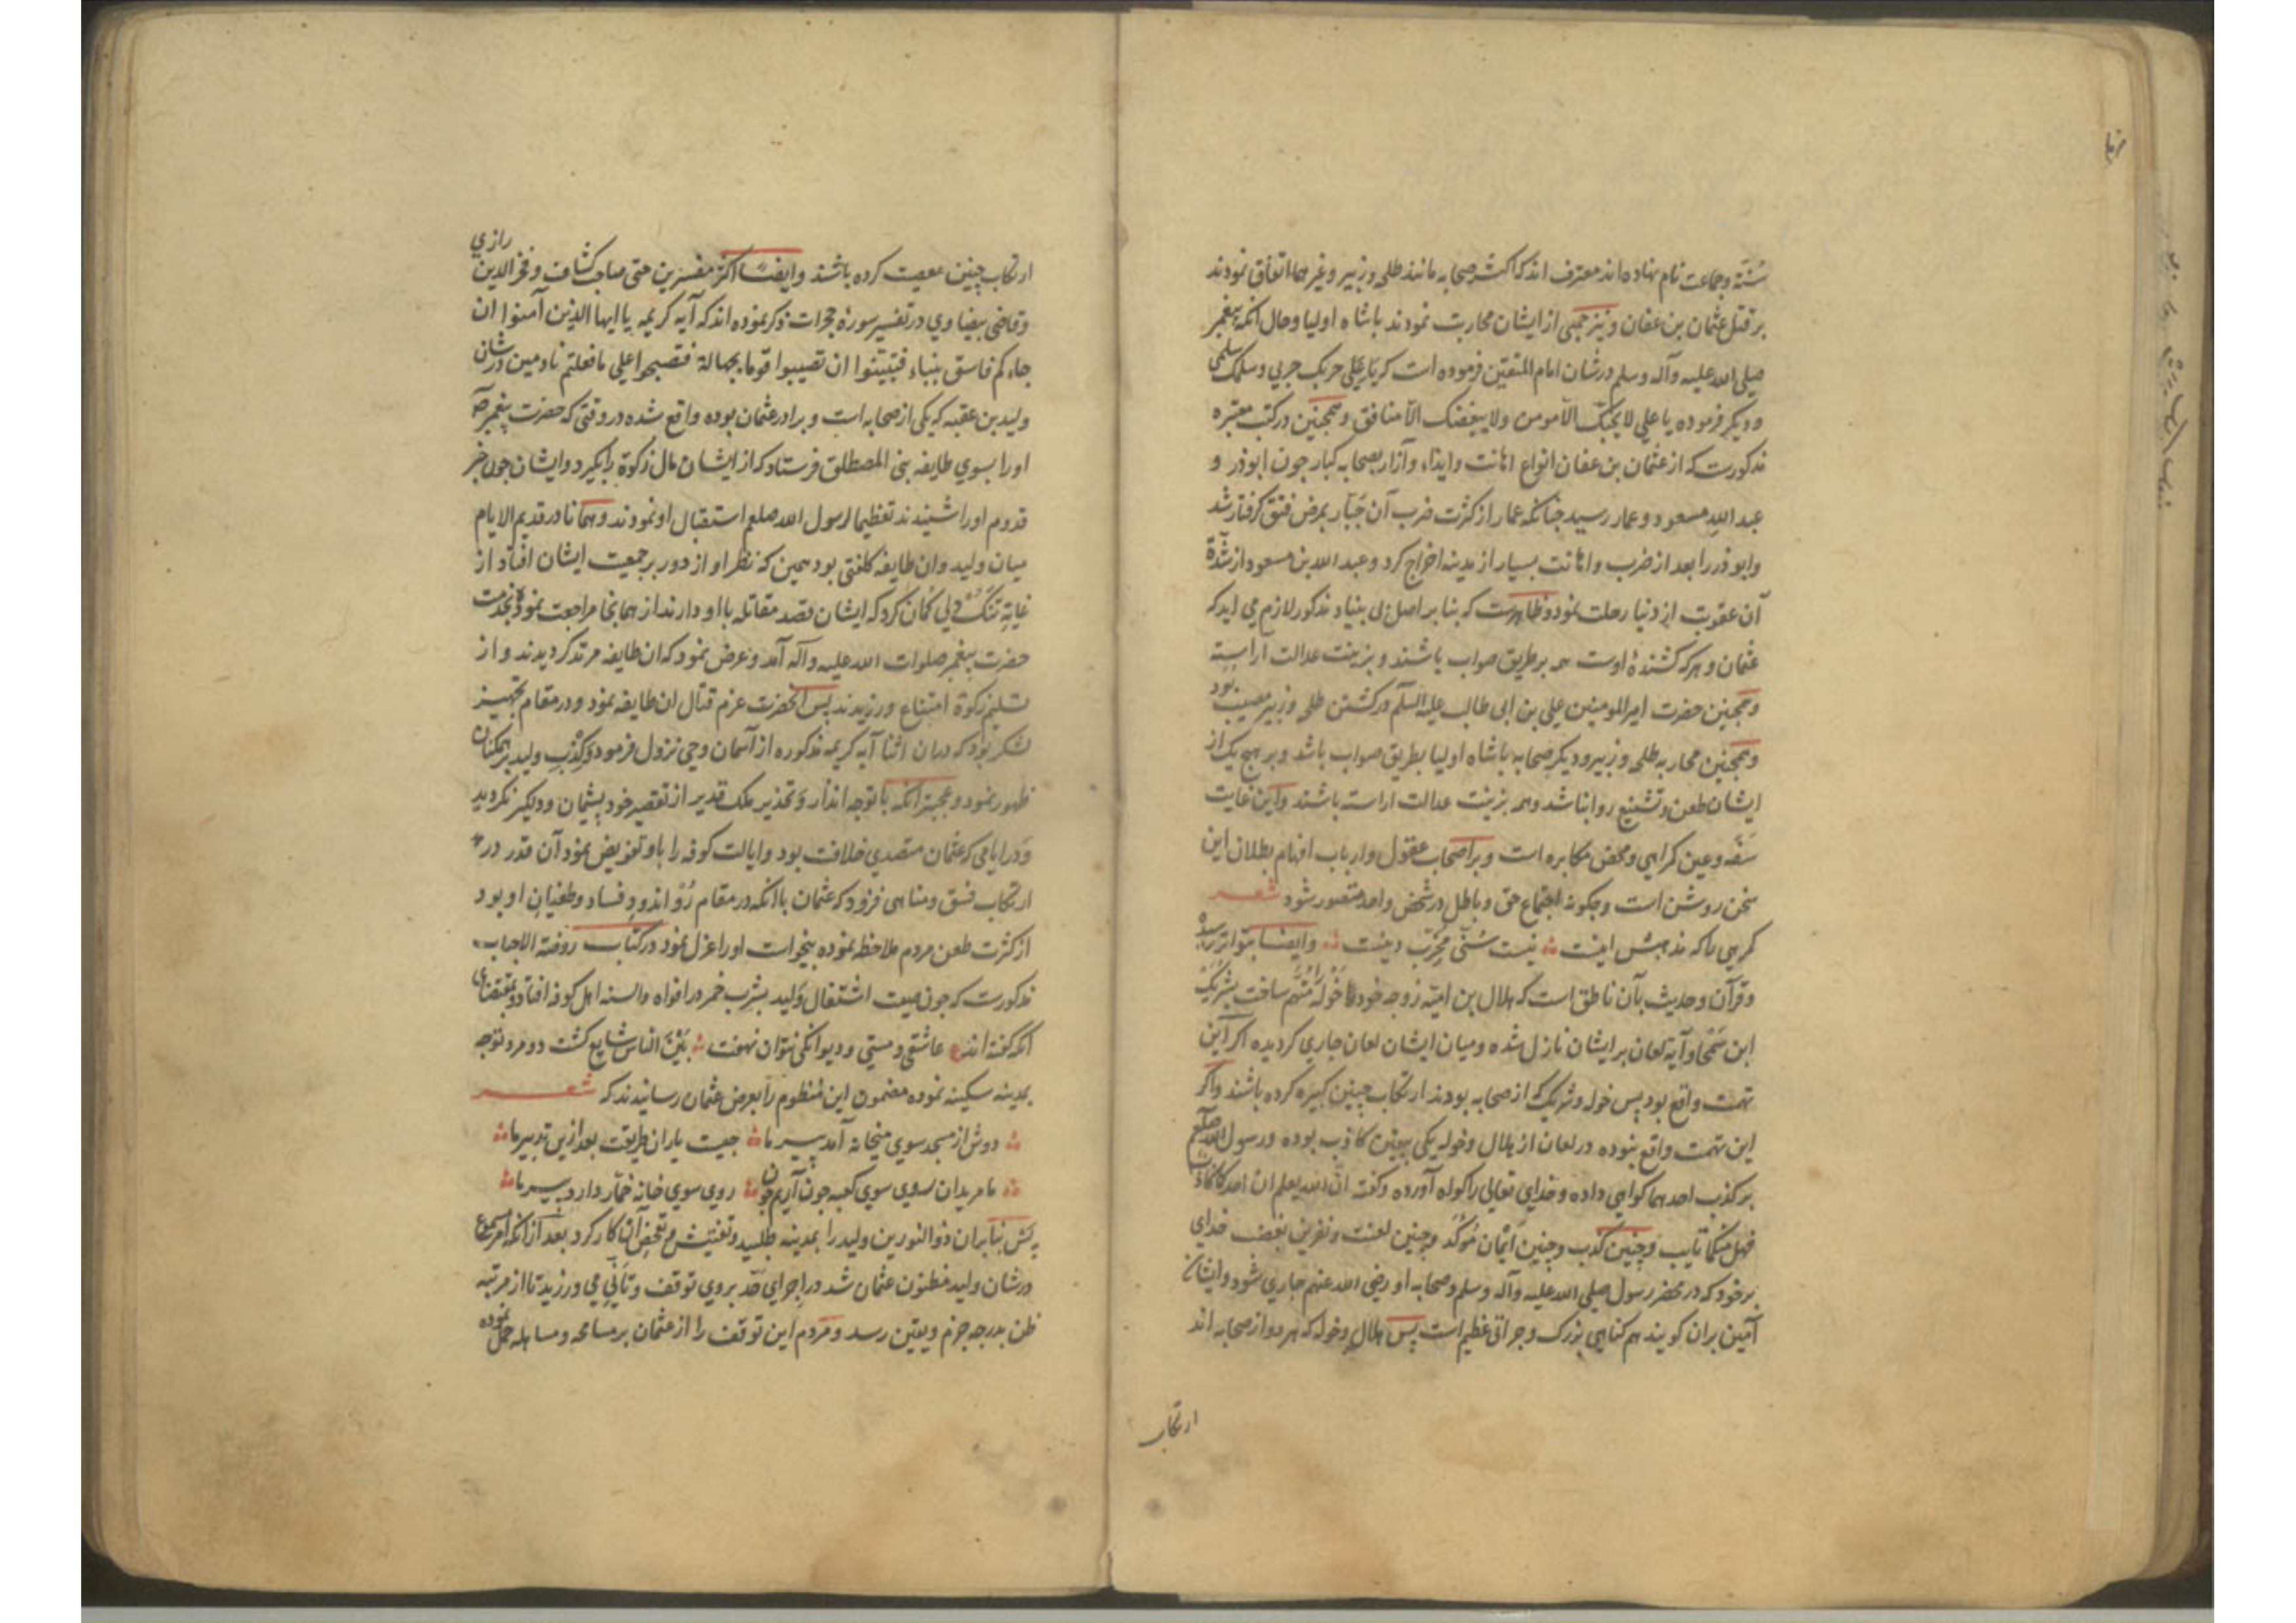 سُنّة وجماعت نام نهاده اند معترف اند که اکثر صحابه مانند طلحه و زبیر و غیر هما اتفاق نمودند
بر قتل عثمان بن عفان و نیز جمعی از ایشان محاربت نمودند با شاه اولیا و حال آنکه پیغمبر
صلی الله علیه وآله وسلم در شان امام المتقین فرموده است که یا علی حربک حربی وسلمک سلمی
و دیکر فرموده یا علی لا یحبّک الا مومن ولا یبغضک الا منافق و همجنین در کتب معتبره
مذکورست که از عثمان بن عفان انواع اهانت و ایذاء و آزار بصحابه کبار جون ابوذر و
عبد الله مسعود و عمار رسید جنانکه عمار از کثرت ضرب آن جَبّار بمرض فتق کرفتار شد
وابوذر را بعد از ضرب و اهانت بسیار از مدینه اخراج کرد و عبد الله بن مسعود از شدّة
آن عقوبت از دنیا رحلت نمود و ظاهرست که بنا بر اصل بی بنیاد مذکور لازم می اید که
عثمان و هر که کشندهٔ اوست همه بر طریق صواب باشند و بزینت عدالت اراسته
و همجنین حضرت امیر المومنین علی بن ابی طالب علیه السلم در کشتن طلحه و زبیر مصیب بود
و همجنین محاربه طلحه و زبیر و دیکر صحابه با شاه اولیا بطریق صواب باشد و بر هیج یک از
ایشان طعن و تشنیع روا نباشد و همه بزینت عدالت اراسته باشند و این غایت
سَفَه و عین کمراهی و محض مکابره است و بر اصحاب عقول و ارباب افهام بطلان این
سخن روشن است و جکونه اجتماع حق و باطل در شخص واحد متصور شود شعر
کرهی را که مذهبش اینست نیست سُنّی مخرّب دینست وایضا بتواتر رسیده
و قرآن و حدیث بآن ناطق است که هلال بن امیّه زوجه خود خَوْلَه را متّهم ساخت بشریک
ابن سَمْحا و آیة لعان بر ایشان نازل شده و میان ایشان لعان جاری کردیده اکر این
تهمت واقع بود پس خوله و شریک که از صحابه بودند ارتکاب جنین کبیره کرده باشند و اکر
این تهمت واقع نبوده در لعان از هلال و خوله یکی بیقین کاذب بوده و رسول الله صلعم
بر کذب احدهما کواهی داده و خدای تعالی را کواه آورده و کفته ان الله یعلم ان احدکما کاذب
فهل منکما تایب و جنین کذب و جنین اَیْمان مُوکّد و جنین لعنت و نفرین بغضب خدای
بر خود که در محضر رسول صلی الله علیه وآله وسلم و صحابه او رضی الله عنهم جاری شود و ایشان
آمین بران کویند هم کناهی بزرک و جراتی عظیم است پس هلال و خوله که هر دو از صحابه اند
ارتکاب
ارتکاب جنین معصیت کرده باشند وایضًا اکثر مفسرین حتی صاحب کشاف و فخر الدین رازی
و قاضی بیضاوی در تفسیر سورهٔ حجرات ذکر نموده اند که آیه کریمه یا ایها الذین آمنوا ان
جاءکم فاسق بنباء فتبیّنوا ان تصیبوا قوما بجهالة فتصبحوا علی ما فعلتم نادمین در شان
ولید بن عقبه که یکی از صحابه است و برادر عثمان بوده واقع شده در وقتی که حضرت پیغمبر
او را بسوی طایفه بنی المصطلق فرستاد که از ایشان مال زکوة را بکیرد و ایشان جون خبر
قدوم او را شنیدند تعظیما لرسول الله صلعم استقبال او نمودند و همانا در قدیم الایام
میان ولید و ان طایفه کلفتی بود همین که نظر او از دور بر جمعیت ایشان افتاد از
غایة تنک دلی کمان کرد که ایشان قصد مقاتله با او دارند از همانجا مراجعت نموده بخدمت
حضرت پیغمبر صلوات الله علیه وآله آمد و عرض نمود که ان طایفه مرتد کردیدند و از
تسلیم زکوة امتناع ورزیدند پس آنحضرت عزم قتال ان طایفه نمود و در مقام تجهیز
لشکر بود که دران اثنا آیه کریمه مذکوره از آسمان وحی نزول فرمود و کذب ولید بر همکنان
ظهور نمود و عجبتر آنکه با توجه انذار و تحذیر ملک قدیر از تقصیر خود پشیمان و دیکر نکردید
و در ایامی که عثمان متصدی خلافت بود و ایالت کوفه را باو تفویض نمود آن قدر در
ارتکاب فسق و مناهی فزود که عثمان با آنکه در مقام ... اندود فساد و طغیان او بود
از کثرت طعن مردم ملاحظه نموده بیخواست او را عزل نمود در کتاب روضة الاحباب
مذکورست که جون صیت اشتغال ولید بشرب خمر در افواه والسنه اهل کوفه افتاد و بمقتضای
آنکه کفته اند ع عاشقی و مستی و دیوانکی نتوان نهفت بَیْنَ الناس شایع کشت دو مرد توجه
بمدینه سکینه نموده مضمون این منظوم را بعرض عثمان رسانیدند که شعر
دوش از مسجد سوی میخانه آمد پیر ما جیست یاران طریقت بعد ازین تدبیر ما
ما مریدان روی سوی کعبه جون آریم جون روی سوی خانه خمّار دارد پیر ما
پس بنابران ذوالنورین ولید را بمدینه طلبید و تفتیش و تفحص آن کار کرد بعد از آنکه امر مسموع
در شان ولید مظنون عثمان شد در اجرای حَدّ بر وی توقف و تأنّی می ورزید تا از مرتبه
ظن بدرجه جزم و یقین رسد و مردم این توقف را از عثمان بر مسامحه و مساهله حمل نموده